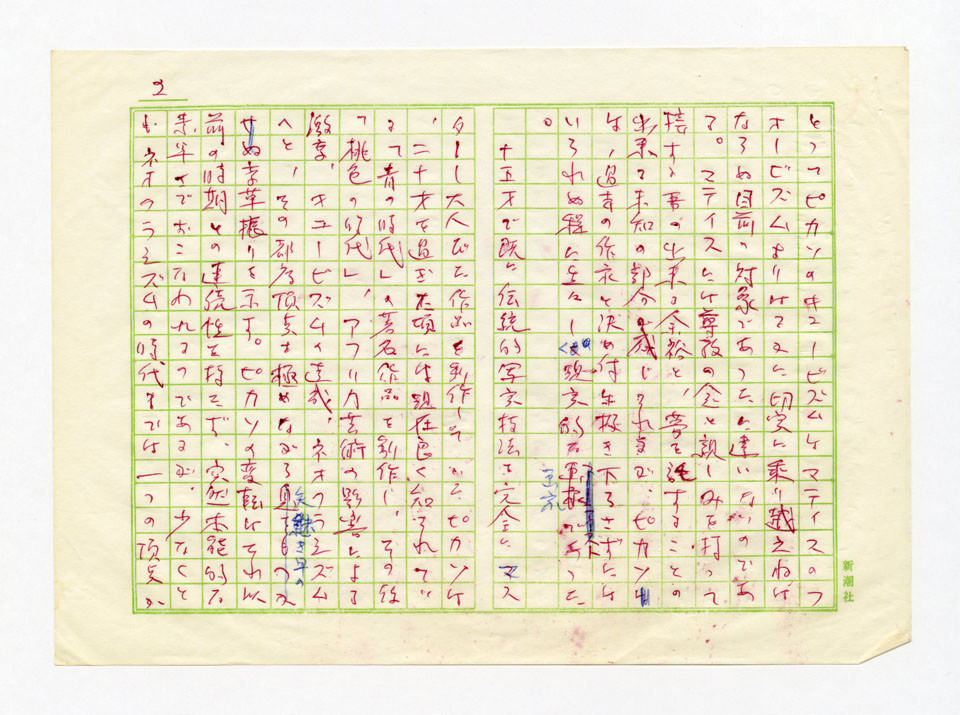 2
とつてピカソのキュービズムはマティスのフ
オービズムよりはるかに切実に乗り越えねば
ならぬ目前の対象であつたに違いないのであ
る。マティスには尊敬の念と親しみを持つて
接する事の出来る余裕と、夢を託すことの
出来る未知の部分が感じられますが、ピカソに
は、過去の作家と決め付け年振き下ろさずには
いられぬ程に生々しく現実的な
。
十五才で既に伝統的写実技法を完全にマス
ターし大人びた作品を制作していたピカソは
、二十才を過ぎた頃には現在良く知られてい
る「青の時代」の著名作品を制作し、その後
「桃色の時代」、アフリカ芸術の影響による
激変、キュービズムの達成、ネオクラシズム
へと、その都度頂点を極めながら
せぬ変革振りを示す。ピカソの変転はそれ以
前の時期との連続性を持たず、突然本能的な
素早さでおこなわれるのであるが、少なくと
もネオクラシズムの時代までは一つの頂点か
新潮社